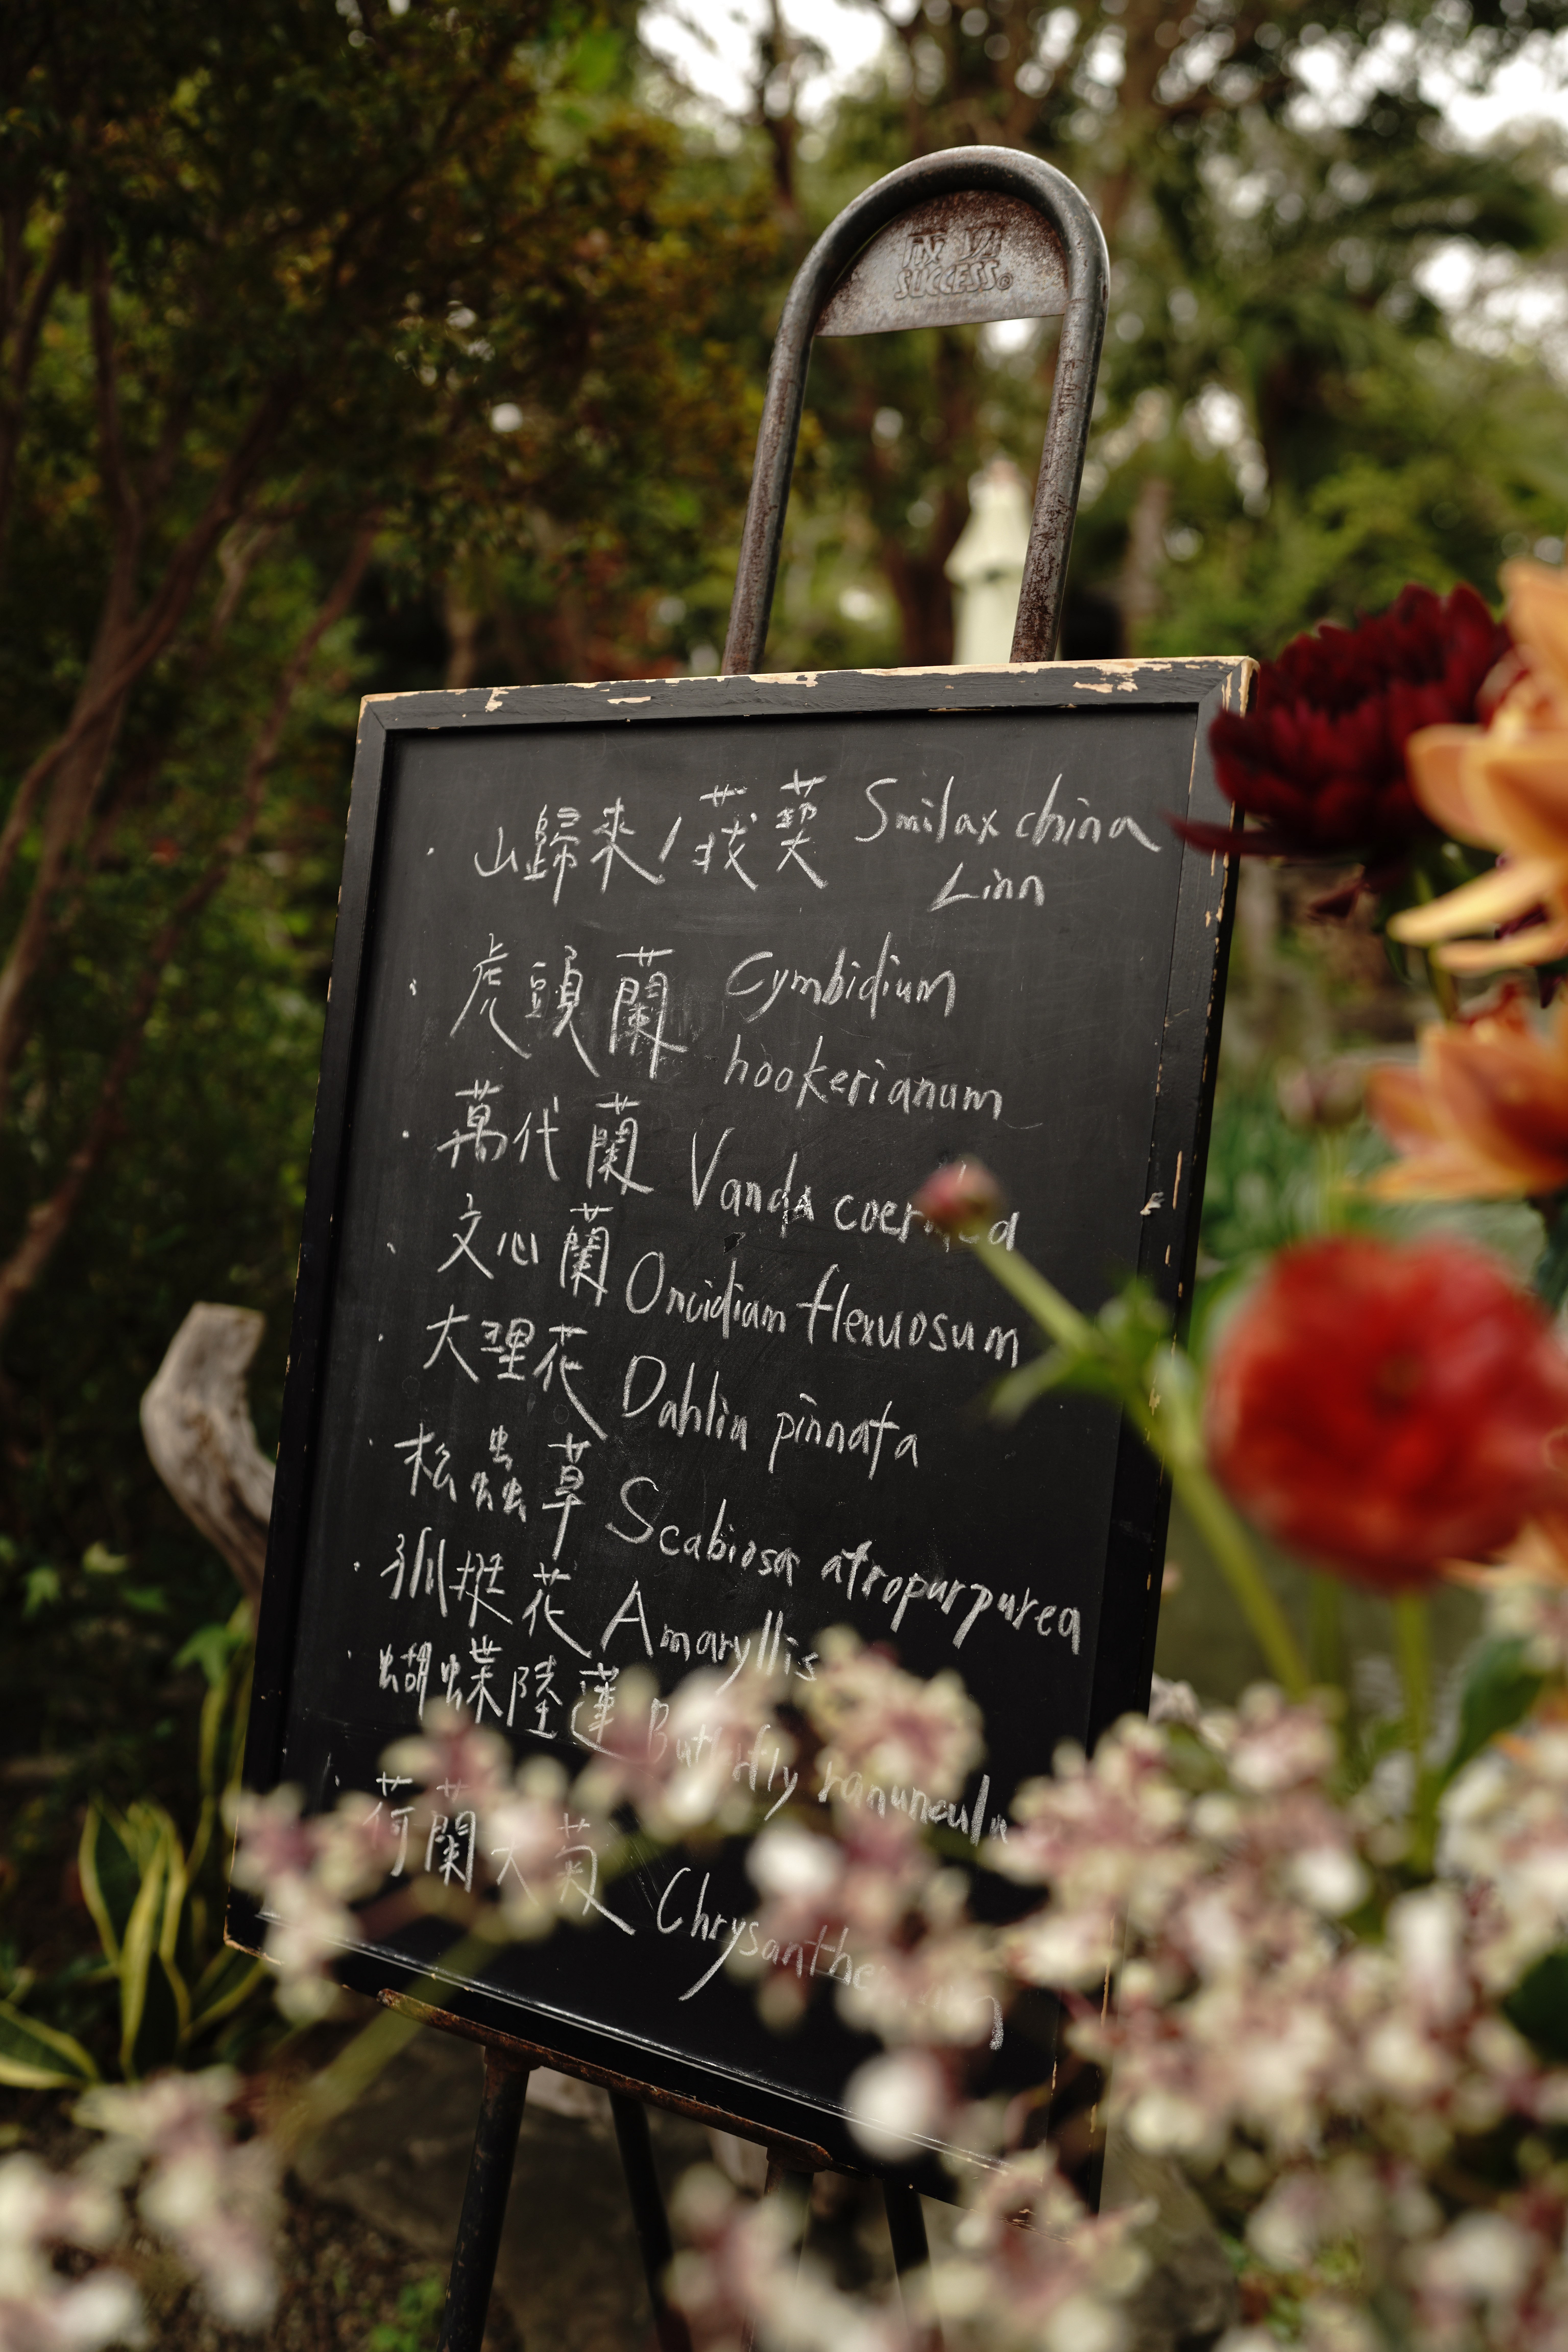 SUCCESS®
· 山歸來/菝葜 Smilax china
Linn
· 虎頭蘭 Cymbidium
hookerianum
· 萬代蘭 Vanda
· 文心蘭 Oncidium flexuosum
· 大理花 Dahlia pinnata
· 松蟲草 Scabiosa atropurpurea
· 孤挺花 Amaryllis
· 蝴蝶陸蓮 Butterfly ranuncula
· 荷蘭大菊